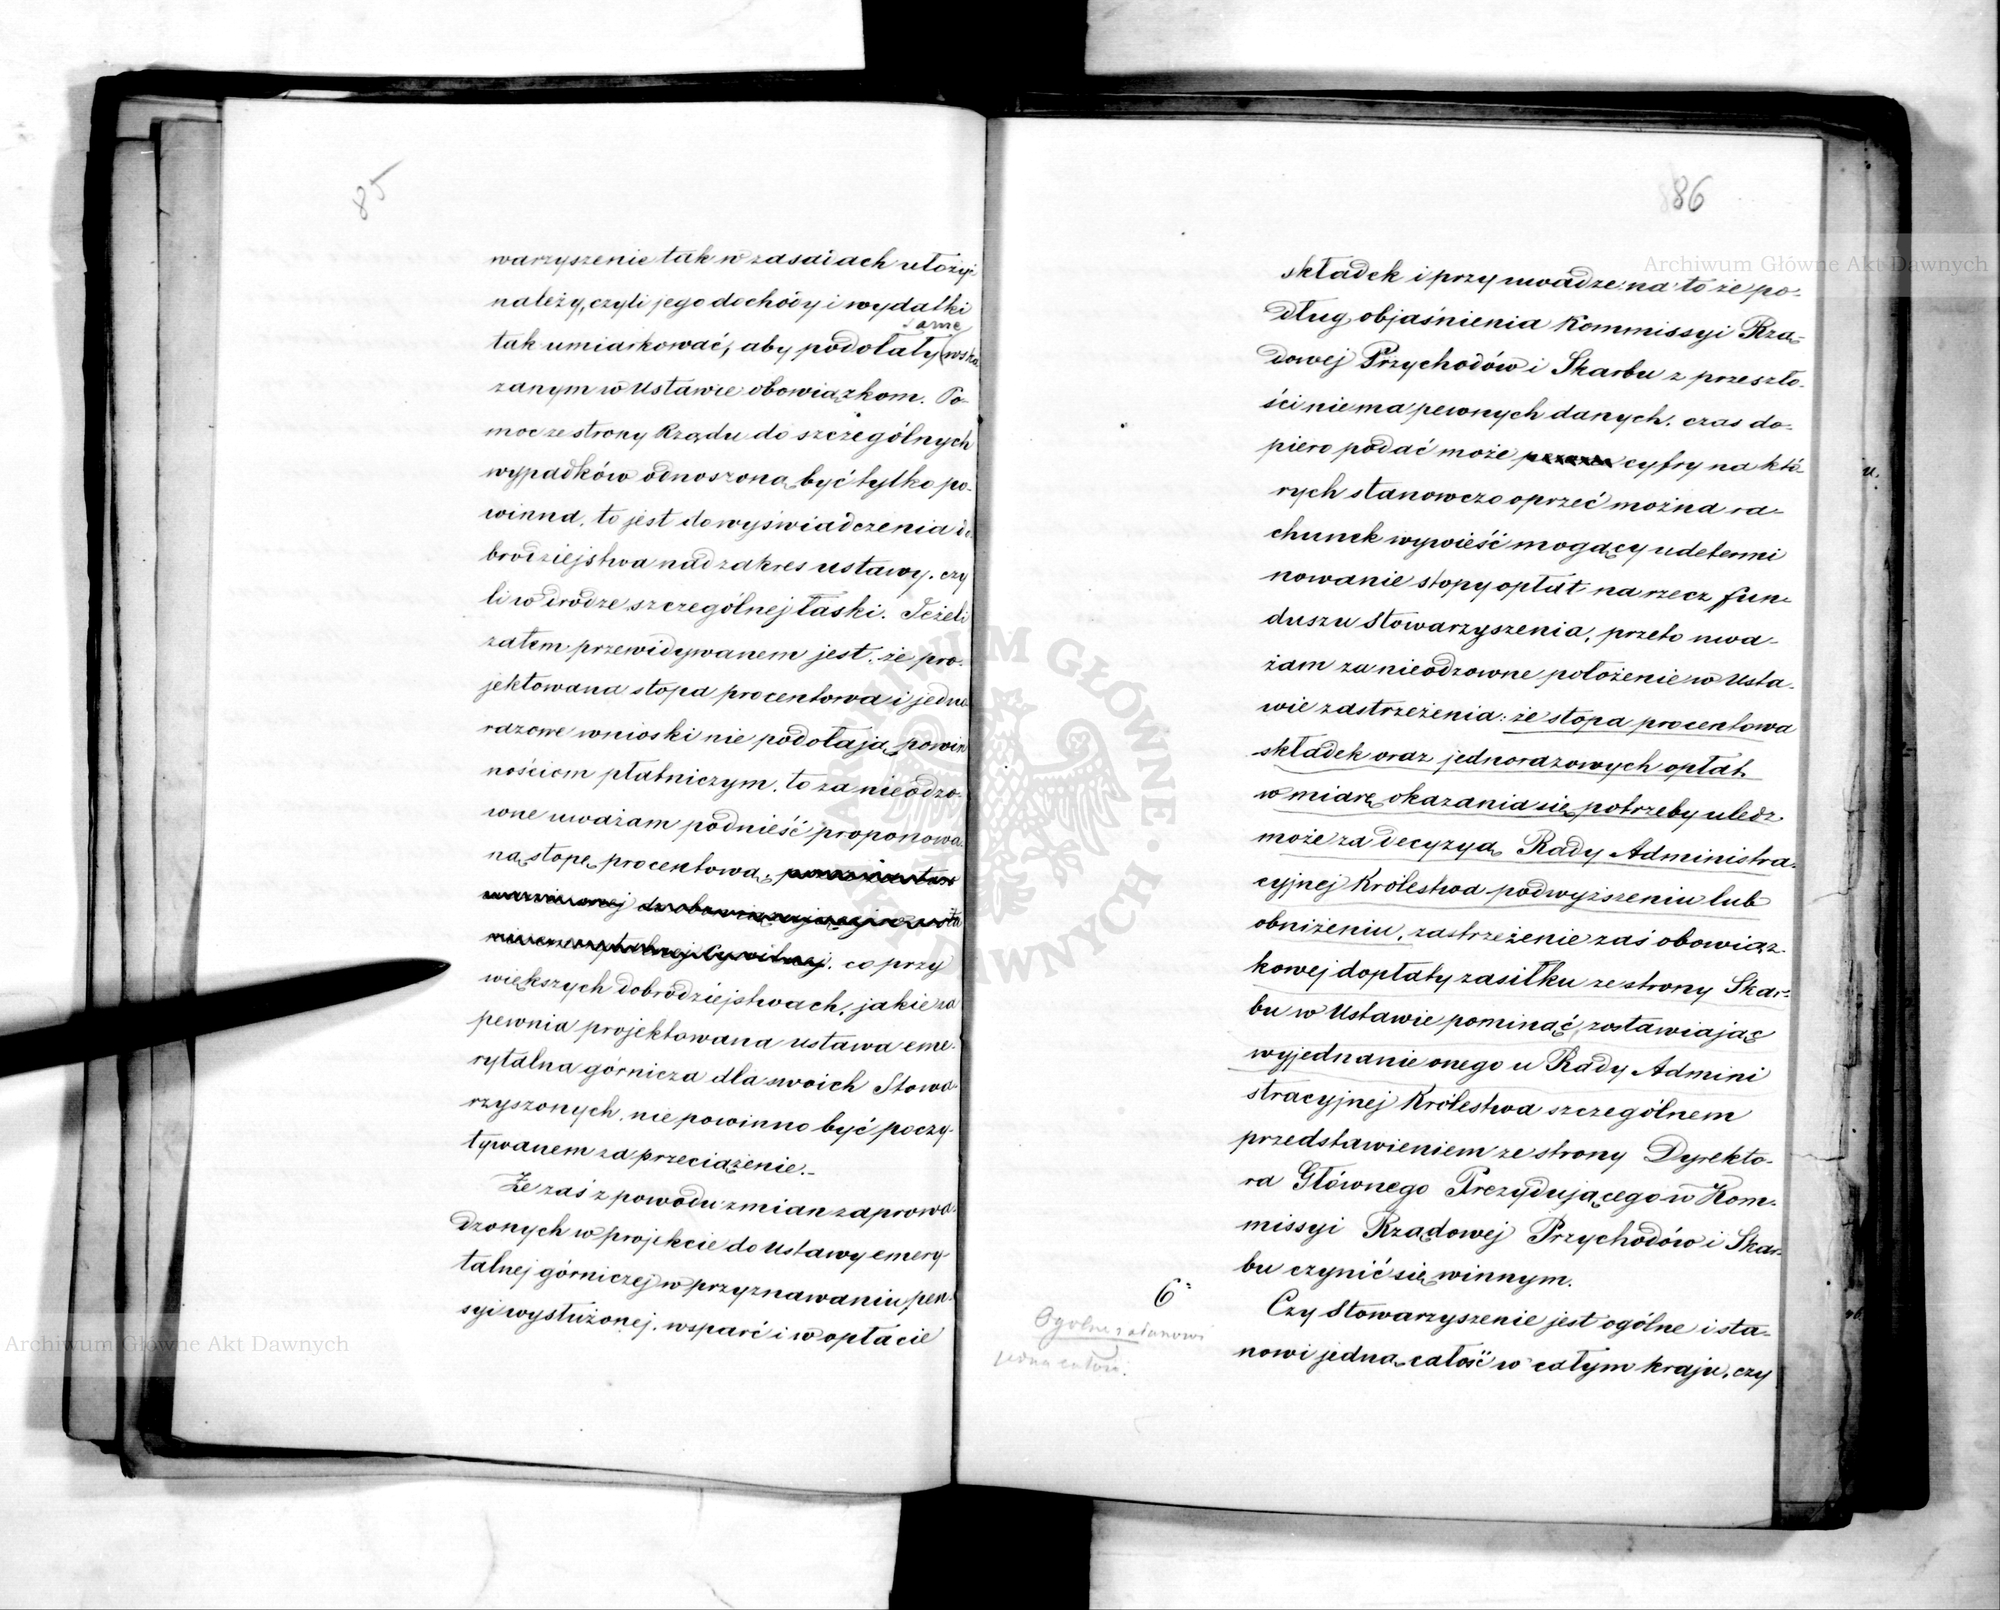 85
warzyszenie tak w zasadach ułożyć
należy, czyli jego dochody i wydatki
same
tak umiarkować, aby podołały wska
zanym w Ustawie obowiązkom. Po-
moc ze strony Rządu do szczególnych
wypadków odnoszoną być tylko po-
winna, to jest do wyświadczenia do
brodziejstwa nad zakres ustawy, czy
li w drodze szczególnej łaski. Jeżeli
zatem przewidywanem jest, że pro-
jektowana stopa procentowa i jedno
razowe wnioski nie podołają powin
nościom płatniczym, to za nieodzo-
wne uważam podnieść proponowa-
ną stopę procentową,
co przy
większych dobrodziejstwach, jakie za
pewnia projektowana ustawa eme-
rytalna górnicza dla swoich Stowa-
rzyszonych, nie powinno być poczy-
tywanem za przeciążenie.-
Że zaś z powodu zmian zaprowa-
dzonych w projekcie do Ustawy emery-
talnej górniczej w przyznawaniu pen-
syi wysłużonej, wsparć i w opłacie
86
składek i przy uwadze na to że po-
dług objaśnienia Kommissyi Rzą-
dowej Przychodów i Skarbu z przeszło-
ści niema pewnych danych, czas do-
piero podać może cyfry na któ-
rych stanowczo oprzeć można ra-
chunek wywieść mogący udetermi
nowanie stopy opłat na rzecz fun-
duszu Stowarzyszenia, przeto uwa-
żam za nieodzowne położenie w Usta-
wie zastrzeżenia: że stopa procentowa
składek oraz jednorazowych opłat,
w miarę okazania się potrzeby uledz
może za decyzyą Rady Administra-
cyjnej Królestwa podwyższeniu lub
obniżeniu, zastrzeżenie zaś obowiąz-
kowej dopłaty zasiłku ze strony Skar-
bu w Ustawie pominąć, zostawiając
wyjednanie onego u Rady Admini
stracyjnej Królestwa szczególnem
przedstawieniem ze strony Dyrekto-
ra Głównego Prezydującego w Kom-
missyi Rządowej Przychodów i Skar-
bu czynić się winnym.
6
Czy Stowarzyszenie jest ogólne i sta-
nowi jedną całość w całym kraju, czy
Archiwum Główne Akt Dawnych
Archiwum Główne Akt Dawnych
ARCHIWUM GŁÓWNE AKT DAWNYCH